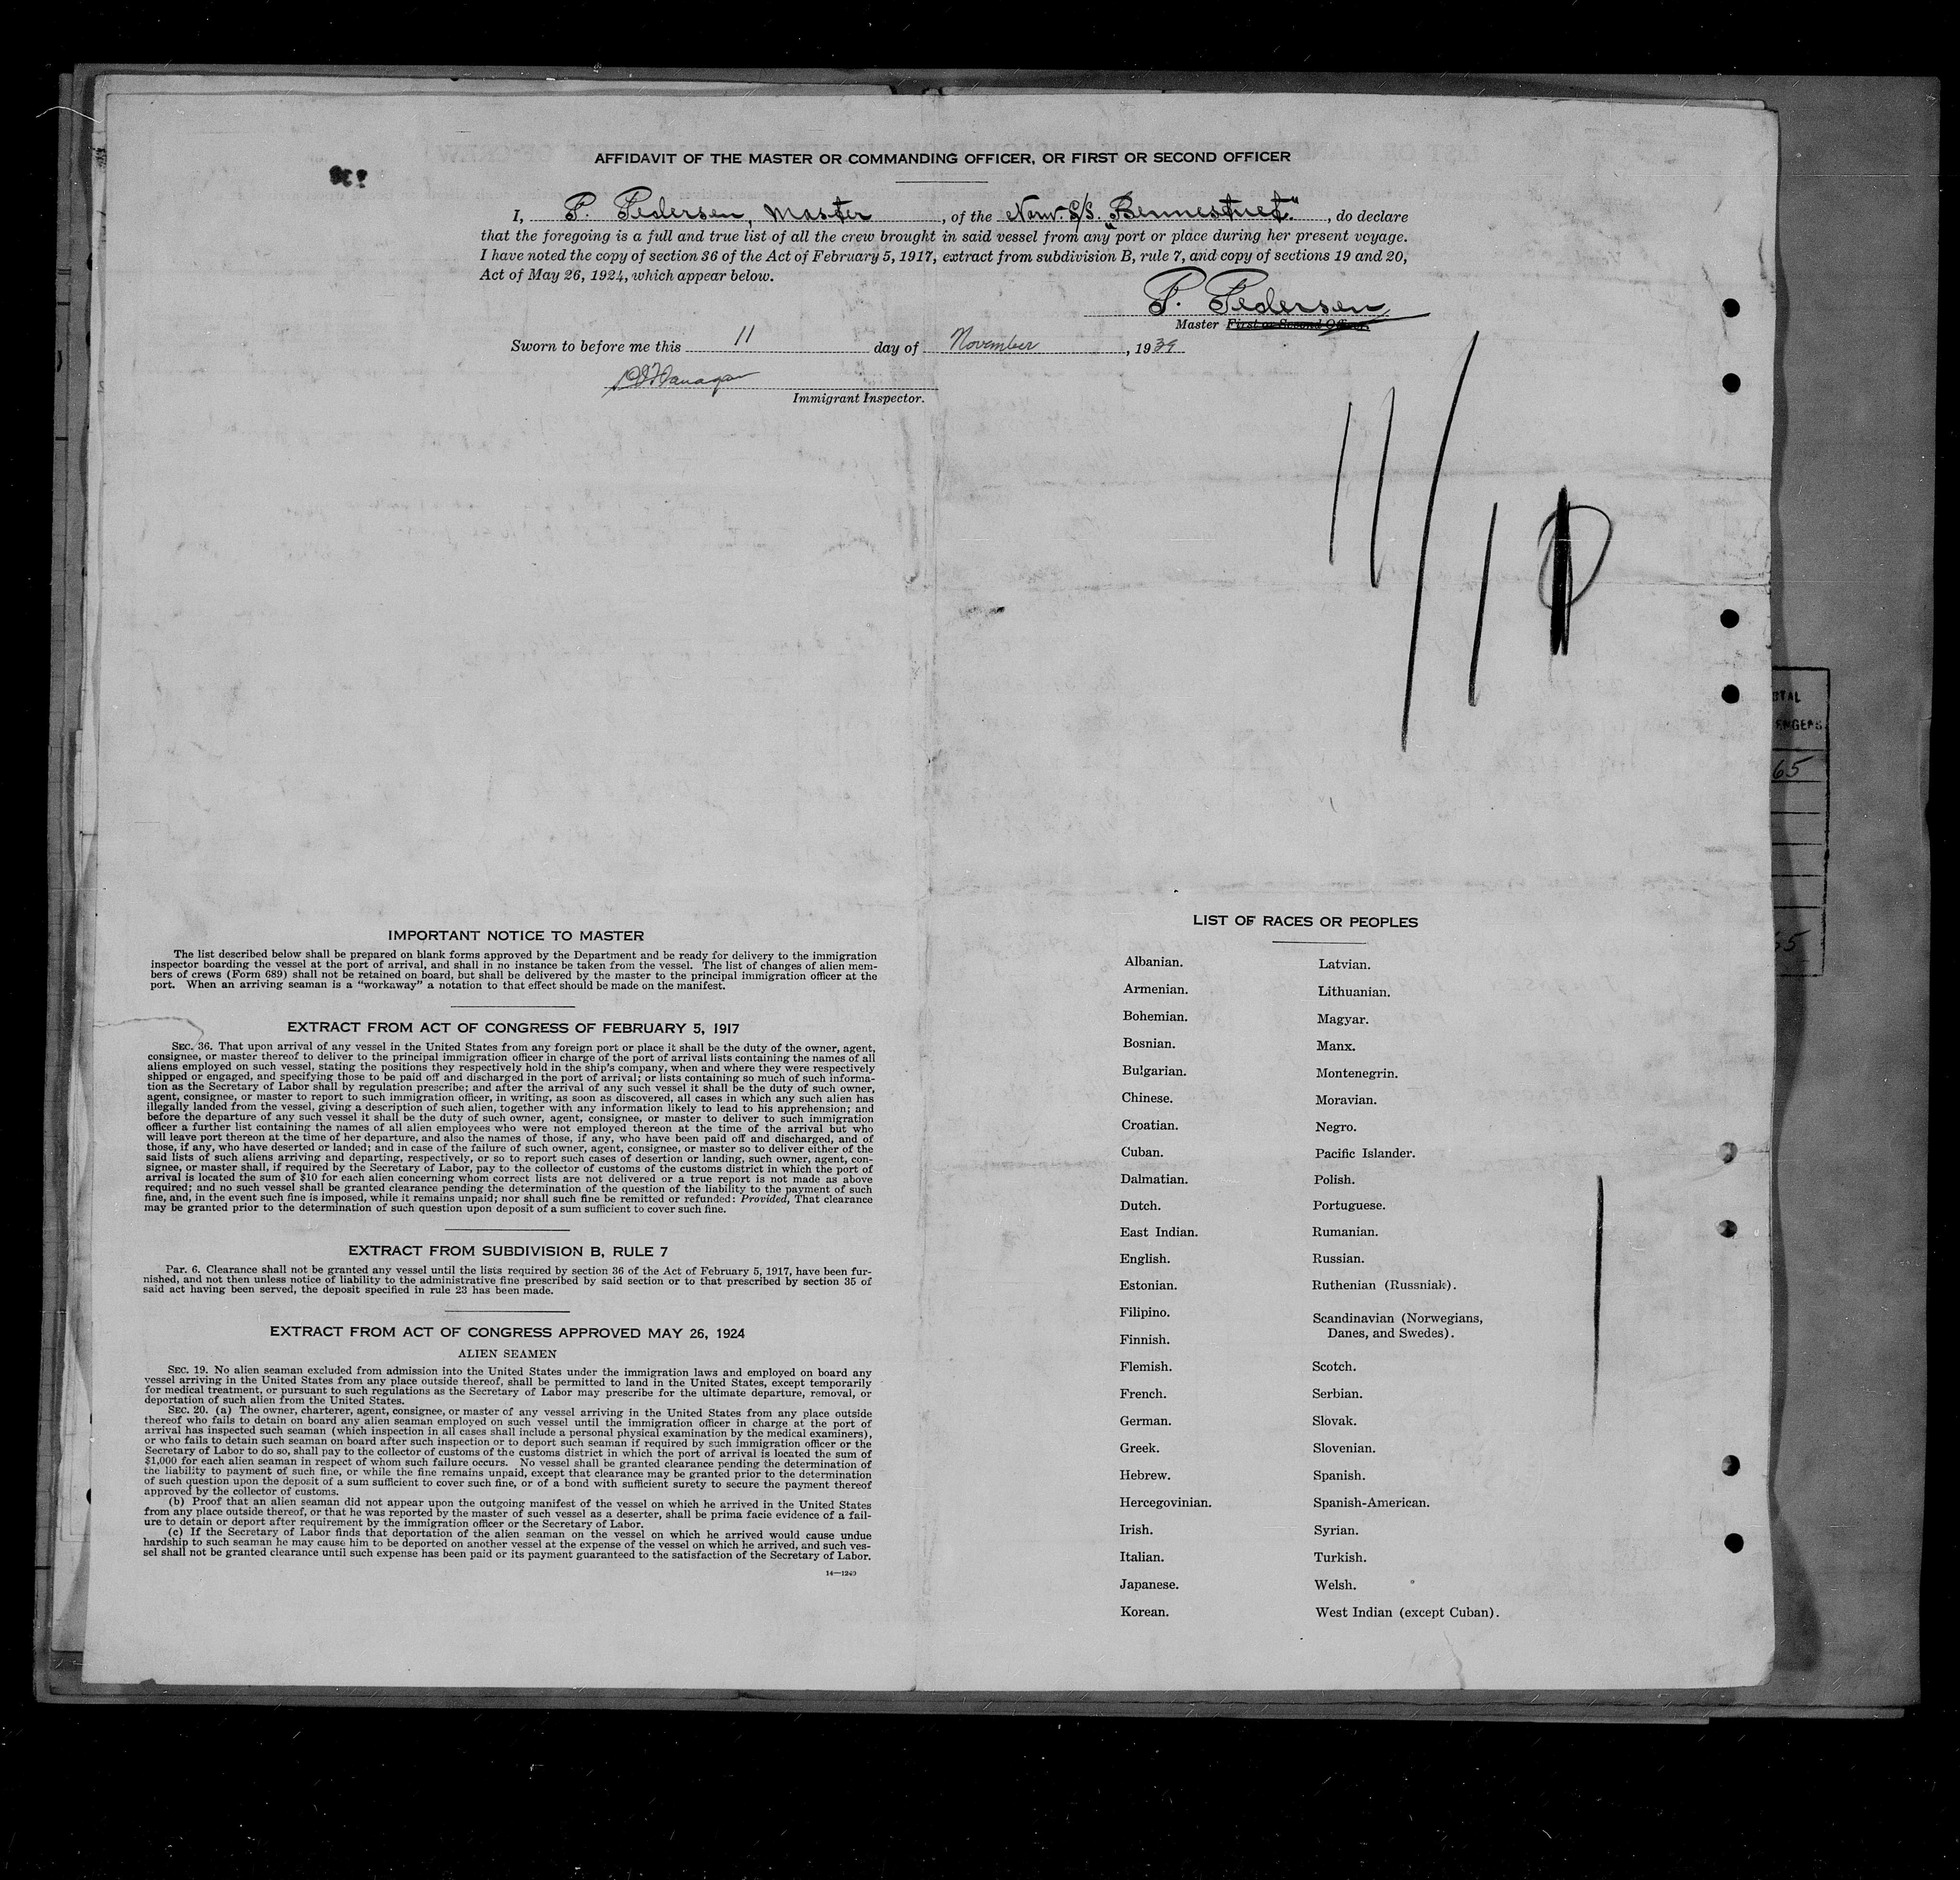 AFFIDAVIT OF THE MASTER OR COMMANDING OFFICER, OR FIRST OR SECOND OFFICER
I, P. Pedersen, Master, of the Norw. S/S. "Bennestvet", do declare
that the foregoing is a full and true list of all the crew brought in said vessel from any port or place during her present voyage.
I have noted the copy of section 36 of the Act of February 5, 1917, extract from subdivision B, rule 7, and copy of sections 19 and 20,
Act of May 26, 1924, which appear below.
P. Pedersen
Master First or Second Officer.
Sworn to before me this 11 day of November, 1939
Immigrant Inspector.
11/1
TAL
ENGERS
65
55
IMPORTANT NOTICE TO MASTER
The list described below shall be prepared on blank forms approved by the Department and be ready for delivery to the immigration
inspector boarding the vessel at the port of arrival, and shall in no instance be taken from the vessel. The list of changes of alien mem-
bers of crews (Form 689) shall not be retained on board, but shall be delivered by the master to the principal immigration officer at the
port. When an arriving seaman is a "workaway" a notation to that effect should be made on the manifest.
EXTRACT FROM ACT OF CONGRESS OF FEBRUARY 5, 1917
SEC. 36. That upon arrival of any vessel in the United States from any foreign port or place it shall be the duty of the owner, agent,
consignee, or master thereof to deliver to the principal immigration officer in charge of the port of arrival lists containing the names of all
aliens employed on such vessel, stating the positions they respectively hold in the ship's company, when and where they were respectively
shipped or engaged, and specifying those to be paid off and discharged in the port of arrival; or lists containing so much of such informa-
tion as the Secretary of Labor shall by regulation prescribe; and after the arrival of any such vessel it shall be the duty of such owner,
agent, consignee, or master to report to such immigration officer, in writing, as soon as discovered, all cases in which any such alien has
illegally landed from the vessel, giving a description of such alien, together with any information likely to lead to his apprehension; and
before the departure of any such vessel it shall be the duty of such owner, agent, consignee, or master to deliver to such immigration
officer a further list containing the names of all alien employees who were not employed thereon at the time of the arrival but who
will leave port thereon at the time of her departure, and also the names of those, if any, who have been paid off and discharged, and of
those, if any, who have deserted or landed; and in case of the failure of such owner, agent, consignee, or master so to deliver either of the
said lists of such aliens arriving and departing, respectively, or so to report such cases of desertion or landing, such owner, agent, con-
signee, or master shall, if required by the Secretary of Labor, pay to the collector of customs of the customs district in which the port of
arrival is located the sum of $10 for each alien concerning whom correct lists are not delivered or a true report is not made as above
required; and no such vessel shall be granted clearance pending the determination of the question of the liability to the payment of such
fine, and, in the event such fine is imposed, while it remains unpaid; nor shall such fine be remitted or refunded: Provided, That clearance
may be granted prior to the determination of such question upon deposit of a sum sufficient to cover such fine.
EXTRACT FROM SUBDIVISION B, RULE 7
Par. 6. Clearance shall not be granted any vessel until the lists required by section 36 of the Act of February 5, 1917, have been fur-
nished, and not then unless notice of liability to the administrative fine prescribed by said section or to that prescribed by section 35 of
said act having been served, the deposit specified in rule 23 has been made.
EXTRACT FROM ACT OF CONGRESS APPROVED MAY 26, 1924
ALIEN SEAMEN
SEC. 19. No alien seaman excluded from admission into the United States under the immigration laws and employed on board any
vessel arriving in the United States from any place outside thereof, shall be permitted to land in the United States, except temporarily
for medical treatment, or pursuant to such regulations as the Secretary of Labor may prescribe for the ultimate departure, removal, or
deportation of such alien from the United States.
SEC. 20. (a) The owner, charterer, agent, consignee, or master of any vessel arriving in the United States from any place outside
thereof who fails to detain on board any alien seaman employed on such vessel until the immigration officer in charge at the port of
arrival has inspected such seaman (which inspection in all cases shall include a personal physical examination by the medical examiners),
or who fails to detain such seaman on board after such inspection or to deport such seaman if required by such immigration officer or the
Secretary of Labor to do so, shall pay to the collector of customs of the customs district in which the port of arrival is located the sum of
$1,000 for each alien seaman in respect of whom such failure occurs. No vessel shall be granted clearance pending the determination of
the liability to payment of such fine, or while the fine remains unpaid, except that clearance may be granted prior to the determination
of such question upon the deposit of a sum sufficient to cover such fine, or of a bond with sufficient surety to secure the payment thereof
approved by the collector of customs.
(b) Proof that an alien seaman did not appear upon the outgoing manifest of the vessel on which he arrived in the United States
from any place outside thereof, or that he was reported by the master of such vessel as a deserter, shall be prima facie evidence of a fail-
ure to detain or deport after requirement by the immigration officer or the Secretary of Labor.
(c) If the Secretary of Labor finds that deportation of the alien seaman on the vessel on which he arrived would cause undue
hardship to such seaman he may cause him to be deported on another vessel at the expense of the vessel on which he arrived, and such ves-
sel shall not be granted clearance until such expense has been paid or its payment guaranteed to the satisfaction of the Secretary of Labor.
14—1240
LIST OF RACES OR PEOPLES
Albanian.
Armenian.
Bohemian.
Bosnian.
Bulgarian.
Chinese.
Croatian.
Cuban.
Dalmatian.
Dutch.
East Indian.
English.
Estonian.
Filipino.
Finnish.
Flemish.
French.
German.
Greek.
Hebrew.
Hercegovinian.
Irish.
Italian.
Japanese.
Korean.
Latvian.
Lithuanian.
Magyar.
Manx.
Montenegrin.
Moravian.
Negro.
Pacific Islander.
Polish.
Portuguese.
Rumanian.
Russian.
Ruthenian (Russniak).
Scandinavian (Norwegians,
Danes, and Swedes).
Scotch.
Serbian.
Slovak.
Slovenian.
Spanish.
Spanish-American.
Syrian.
Turkish.
Welsh.
West Indian (except Cuban).